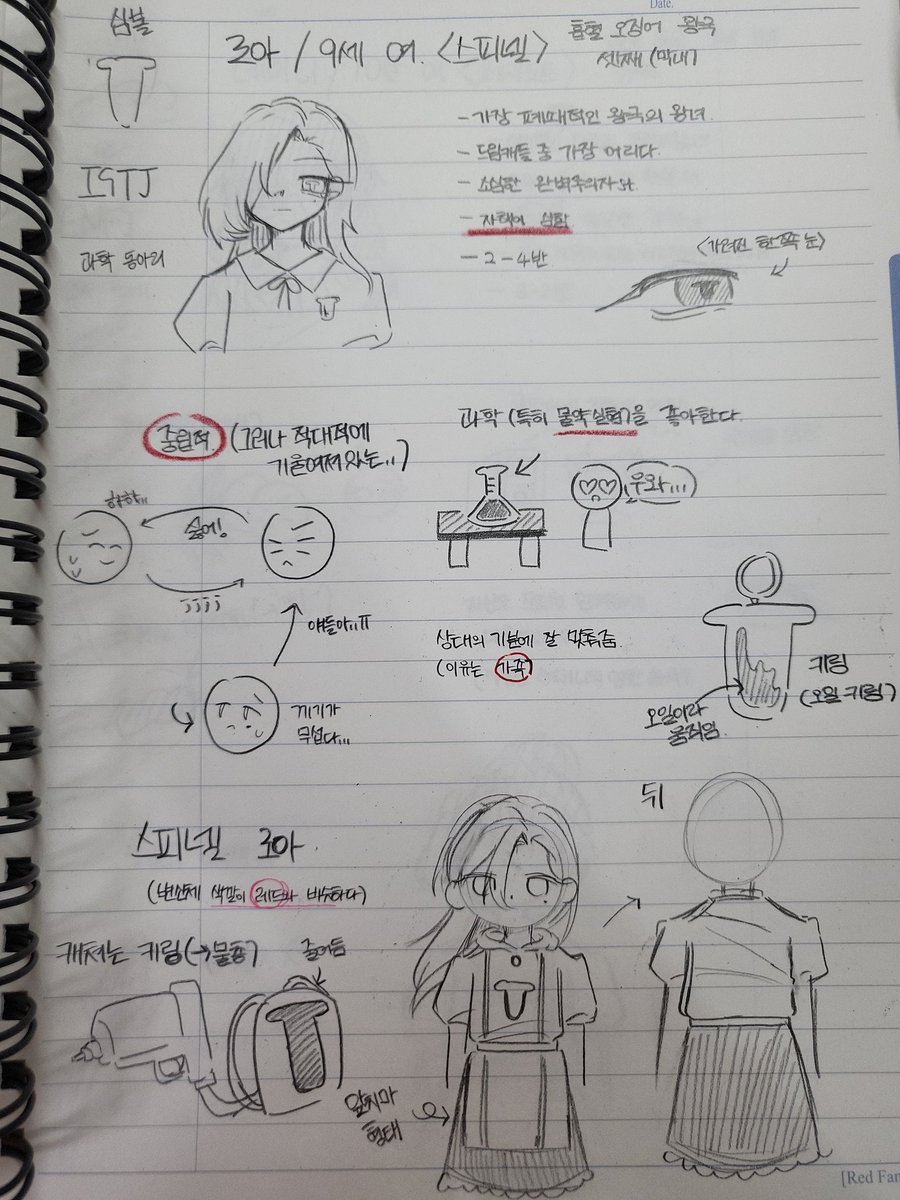 Date.
심볼
로아 / 9세 여. <스피넬>
흡혈 오징어 왕국
셋째 (막내)
- 가장 폐쇄적인 왕국의 왕녀.
- 드림캐들 중 가장 어리다.
ISTJ
- 소심한 완벽주의자
- 자책이 심함
과학 동아리
- 2-4반
<가려진 한쪽 눈>
중립적 (그러나 적대적에
기울여져 있는..)
과학 (특히 물약실험)을 좋아한다.
하하..
싫어!
우와...
얘들아..ㅠ
상대의 기분에 잘 맞춰줌
(이유는 가족)
키링
(오일 키링)
오일이라
움직임
끼기가
무섭다...
뒤
스피넬 로아
(변신체 색깔이 레드와 비슷하다)
캐처는 키링(→물총)
줄어듬
앞치마
형태
[Red Fan